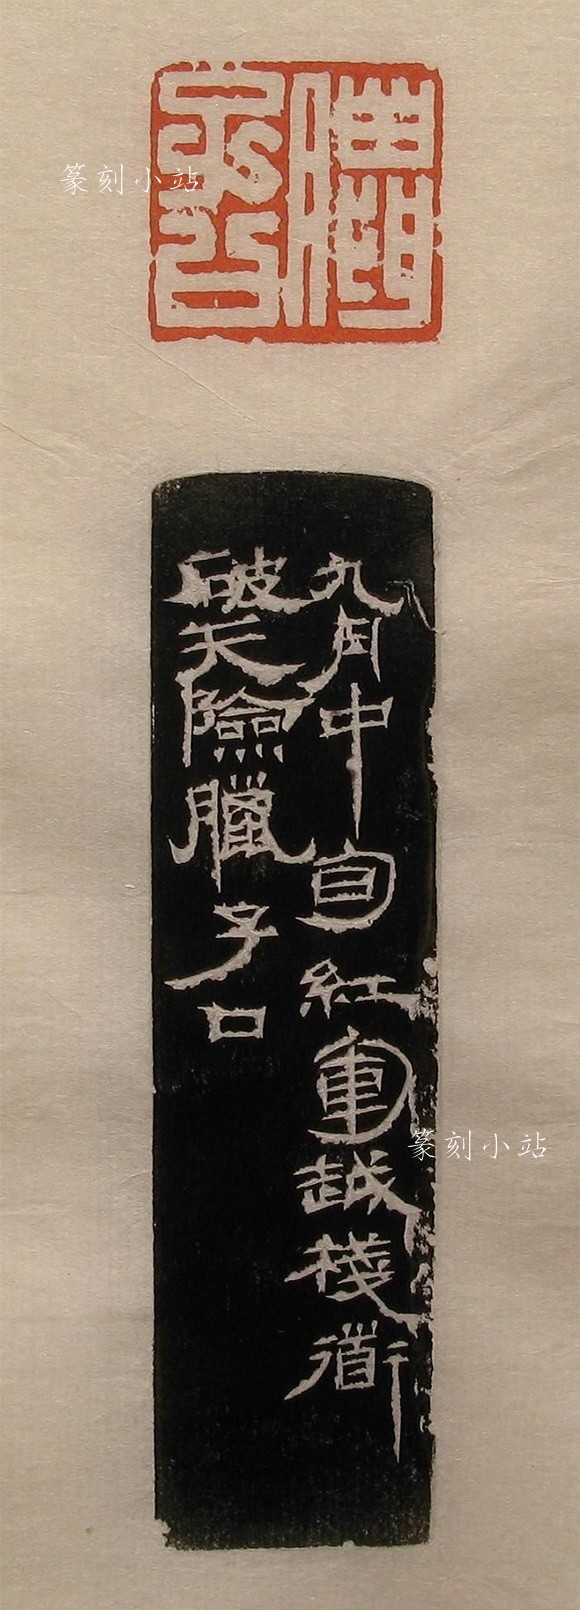 篆刻小站
九月中旬紅軍越棧道
破天險臘子口
篆刻小站